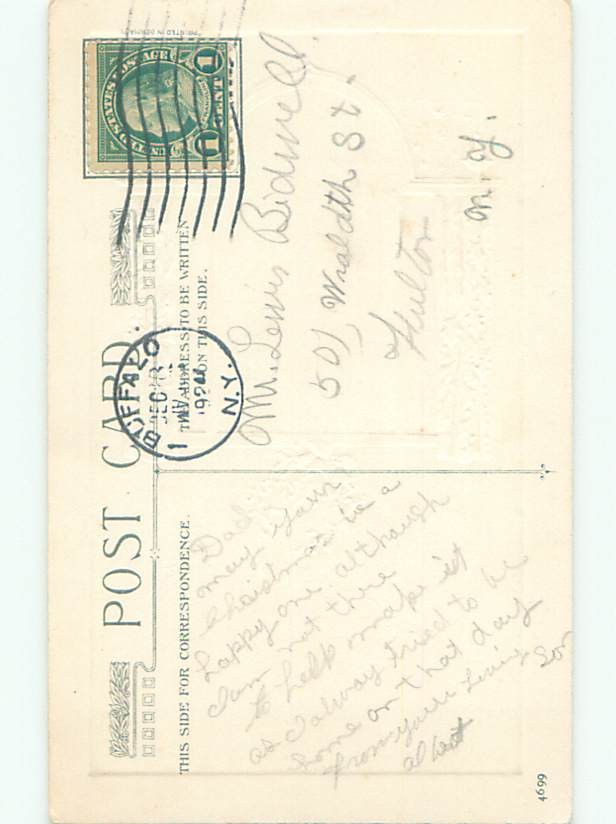 PRINTED IN GERMANY
UNITED STATES POSTAGE
1 CENT 1
POST CARD.
THIS SIDE FOR CORRESPONDENCE.
THE ADDRESS TO BE WRITTEN
ON THIS SIDE.
BUFFALO
DEC
1924
N.Y.
1
Mr. Lewis Bidwell.
501, Wraldth St.
Fulton
N.Y.
Dad
may your
Christmas be a
happy one although
I am not there
to help make it
as I alway tried to be
home on that day
from your Loving Son
albert
4699